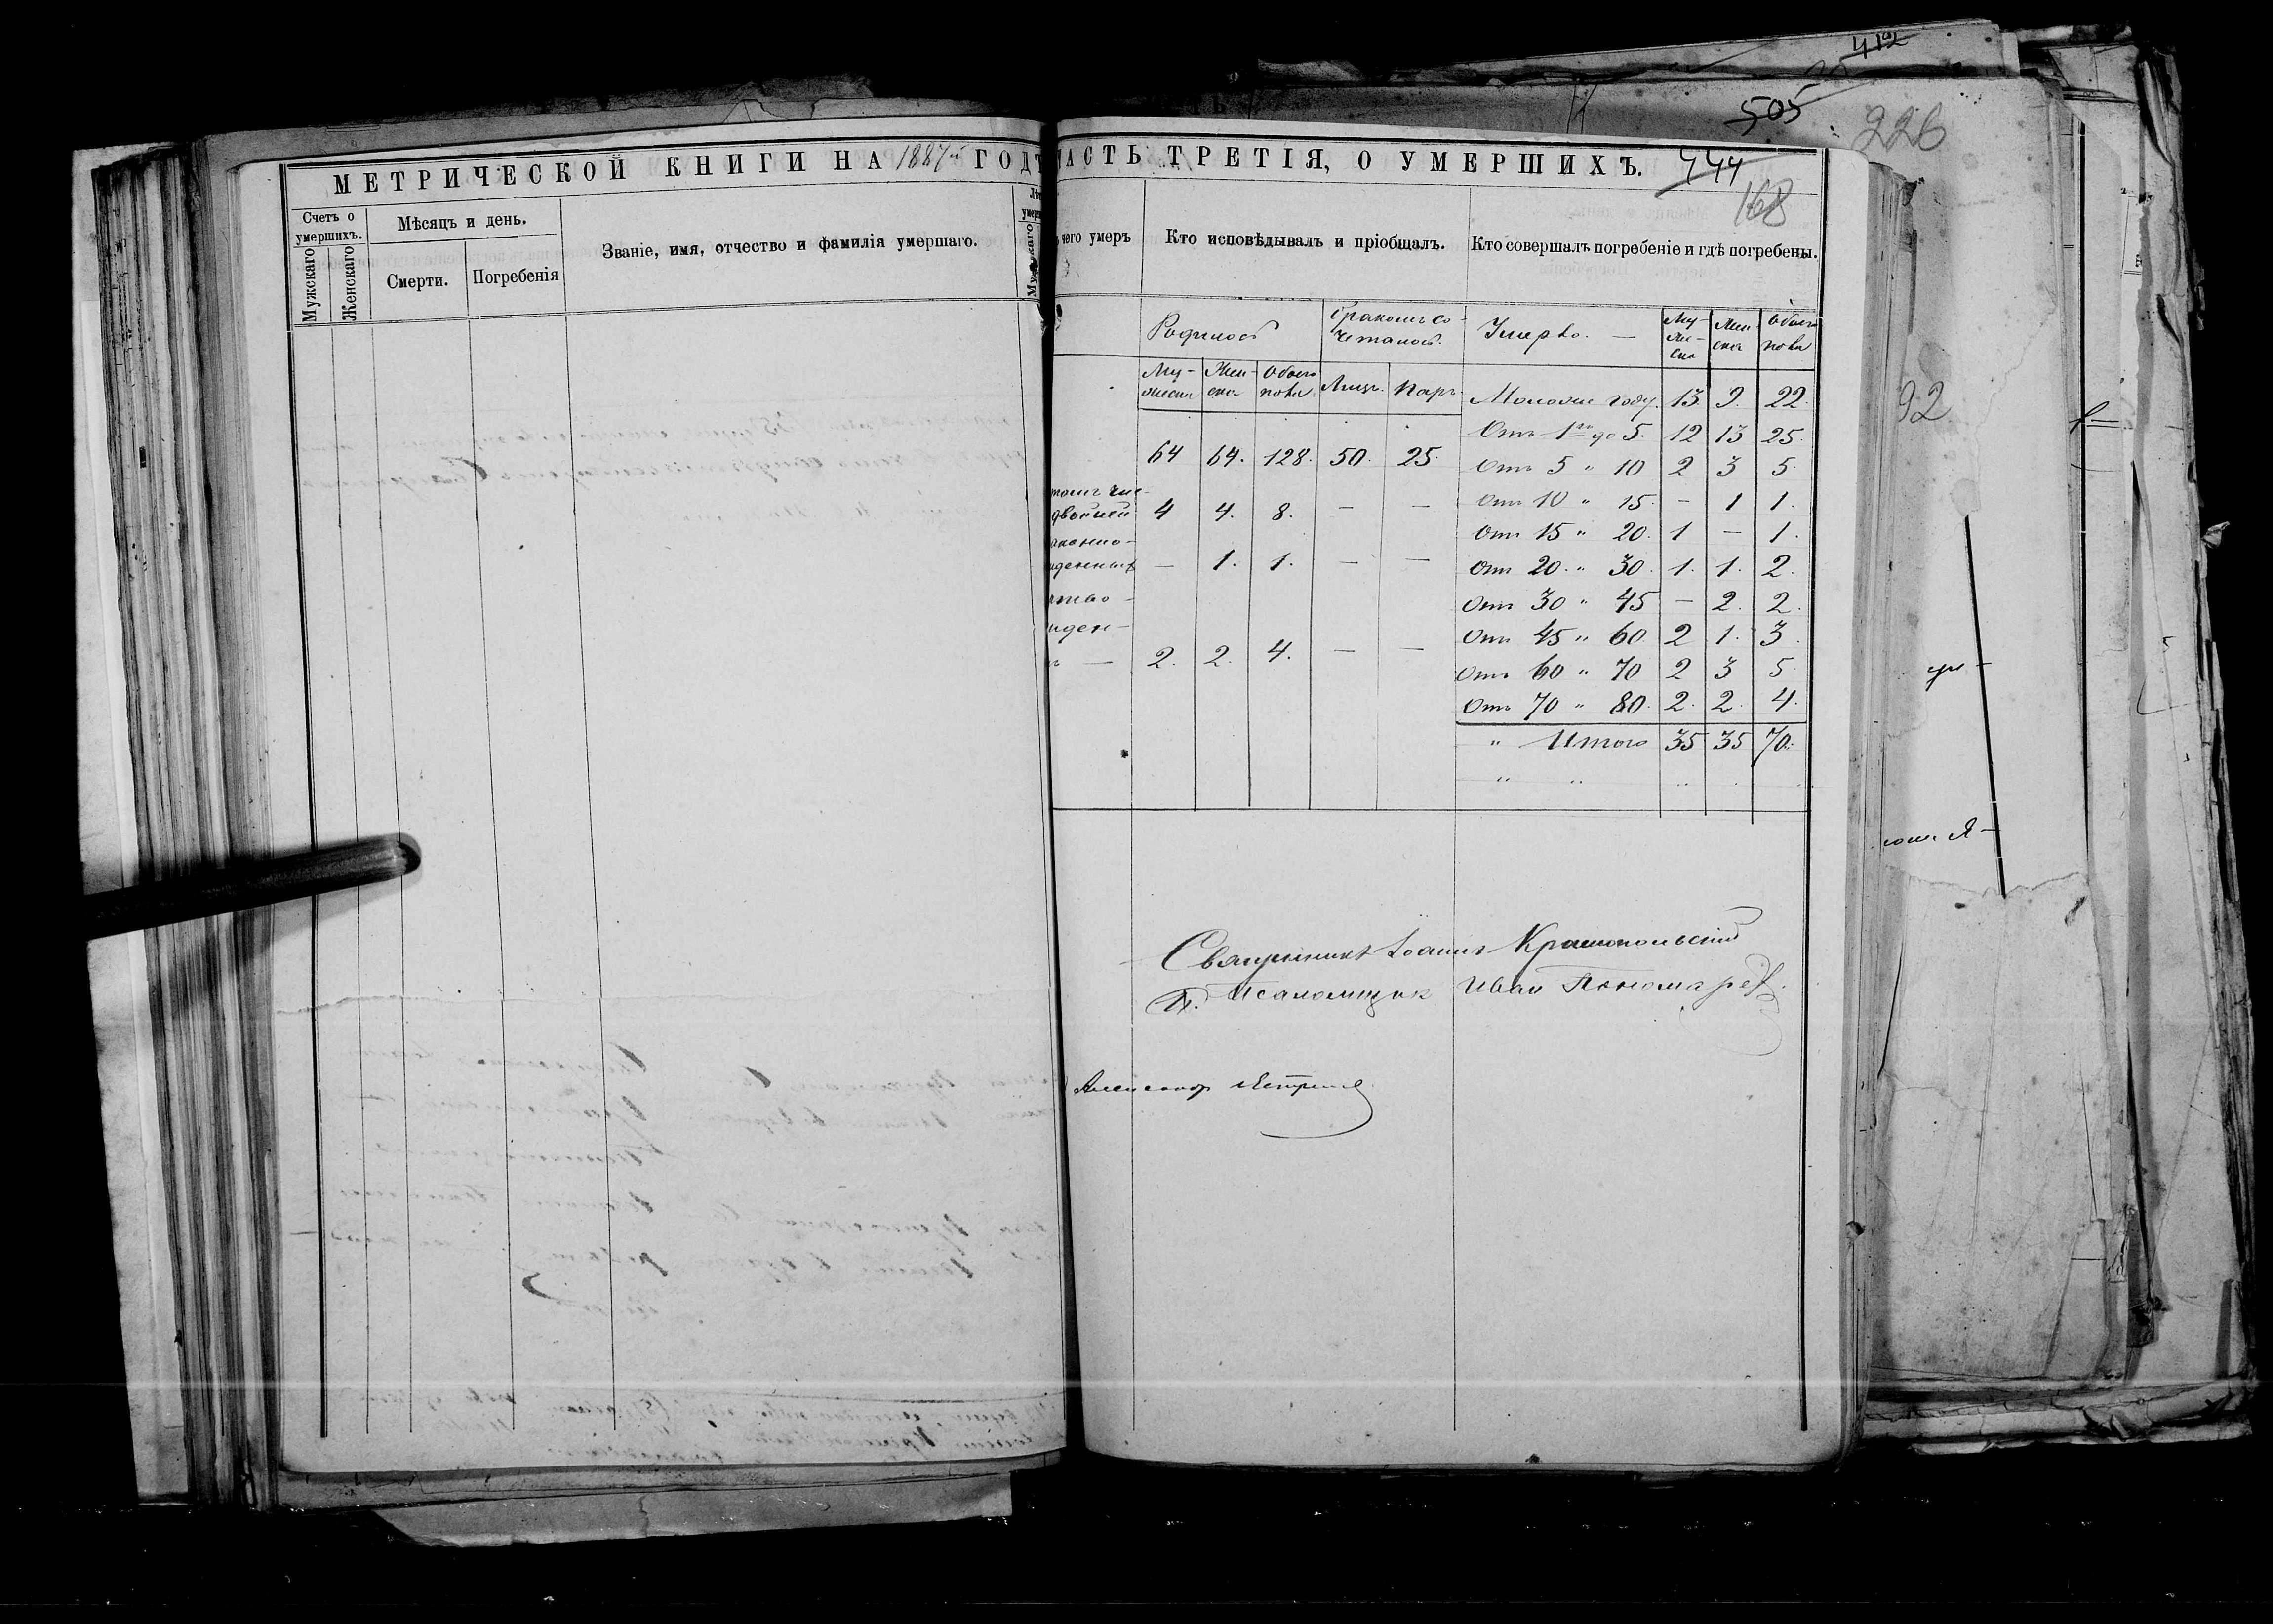 412
505
226
МЕТРИЧЕСКОЙ КНИГИ НА 1887й ГОДЪ
ЧАСТЬ ТРЕТІЯ, О УМЕРШИХЪ.
444
168
Счетъ о умершихъ.
Мужскаго
Женскаго
Мѣсяцъ и день.
Смерти.
Погребенія
Званіе, имя, отчество и фамилія умершаго.
Мужскаго
чего умеръ
Кто исповѣдывалъ и пріобщалъ.
Кто совершалъ погребеніе и гдѣ погребены.
Родилось
Бракомъ сочеталось.
Умерло. —
Мужеска
Женска
Обоего пола
Мужеска Женска Обоего пола Лицъ. Паръ
Моложе году. 13 9. 22.
Отъ 1го до 5. 12 13 25.
64 64. 128. 50. 25.
Отъ 5 " 10 2 3 5.
Отъ 10 " 15. – 1 1.
двойней 4 4. 8. — —
Отъ 15 " 20. 1 – 1.
— 1. 1. — —
Отъ 20. " 30. 1. 1. 2.
Отъ 30 " 45 – 2. 2.
Отъ 45 " 60 2 1. 3.
— 2. 2. 4. — —
Отъ 60 " 70 2 3 5.
Отъ 70 " 80. 2. 2. 4.
" Итого 35 35 70.
92
Священникъ Іоаннъ Краснопольскій
Псаломщик Иван Пономарев